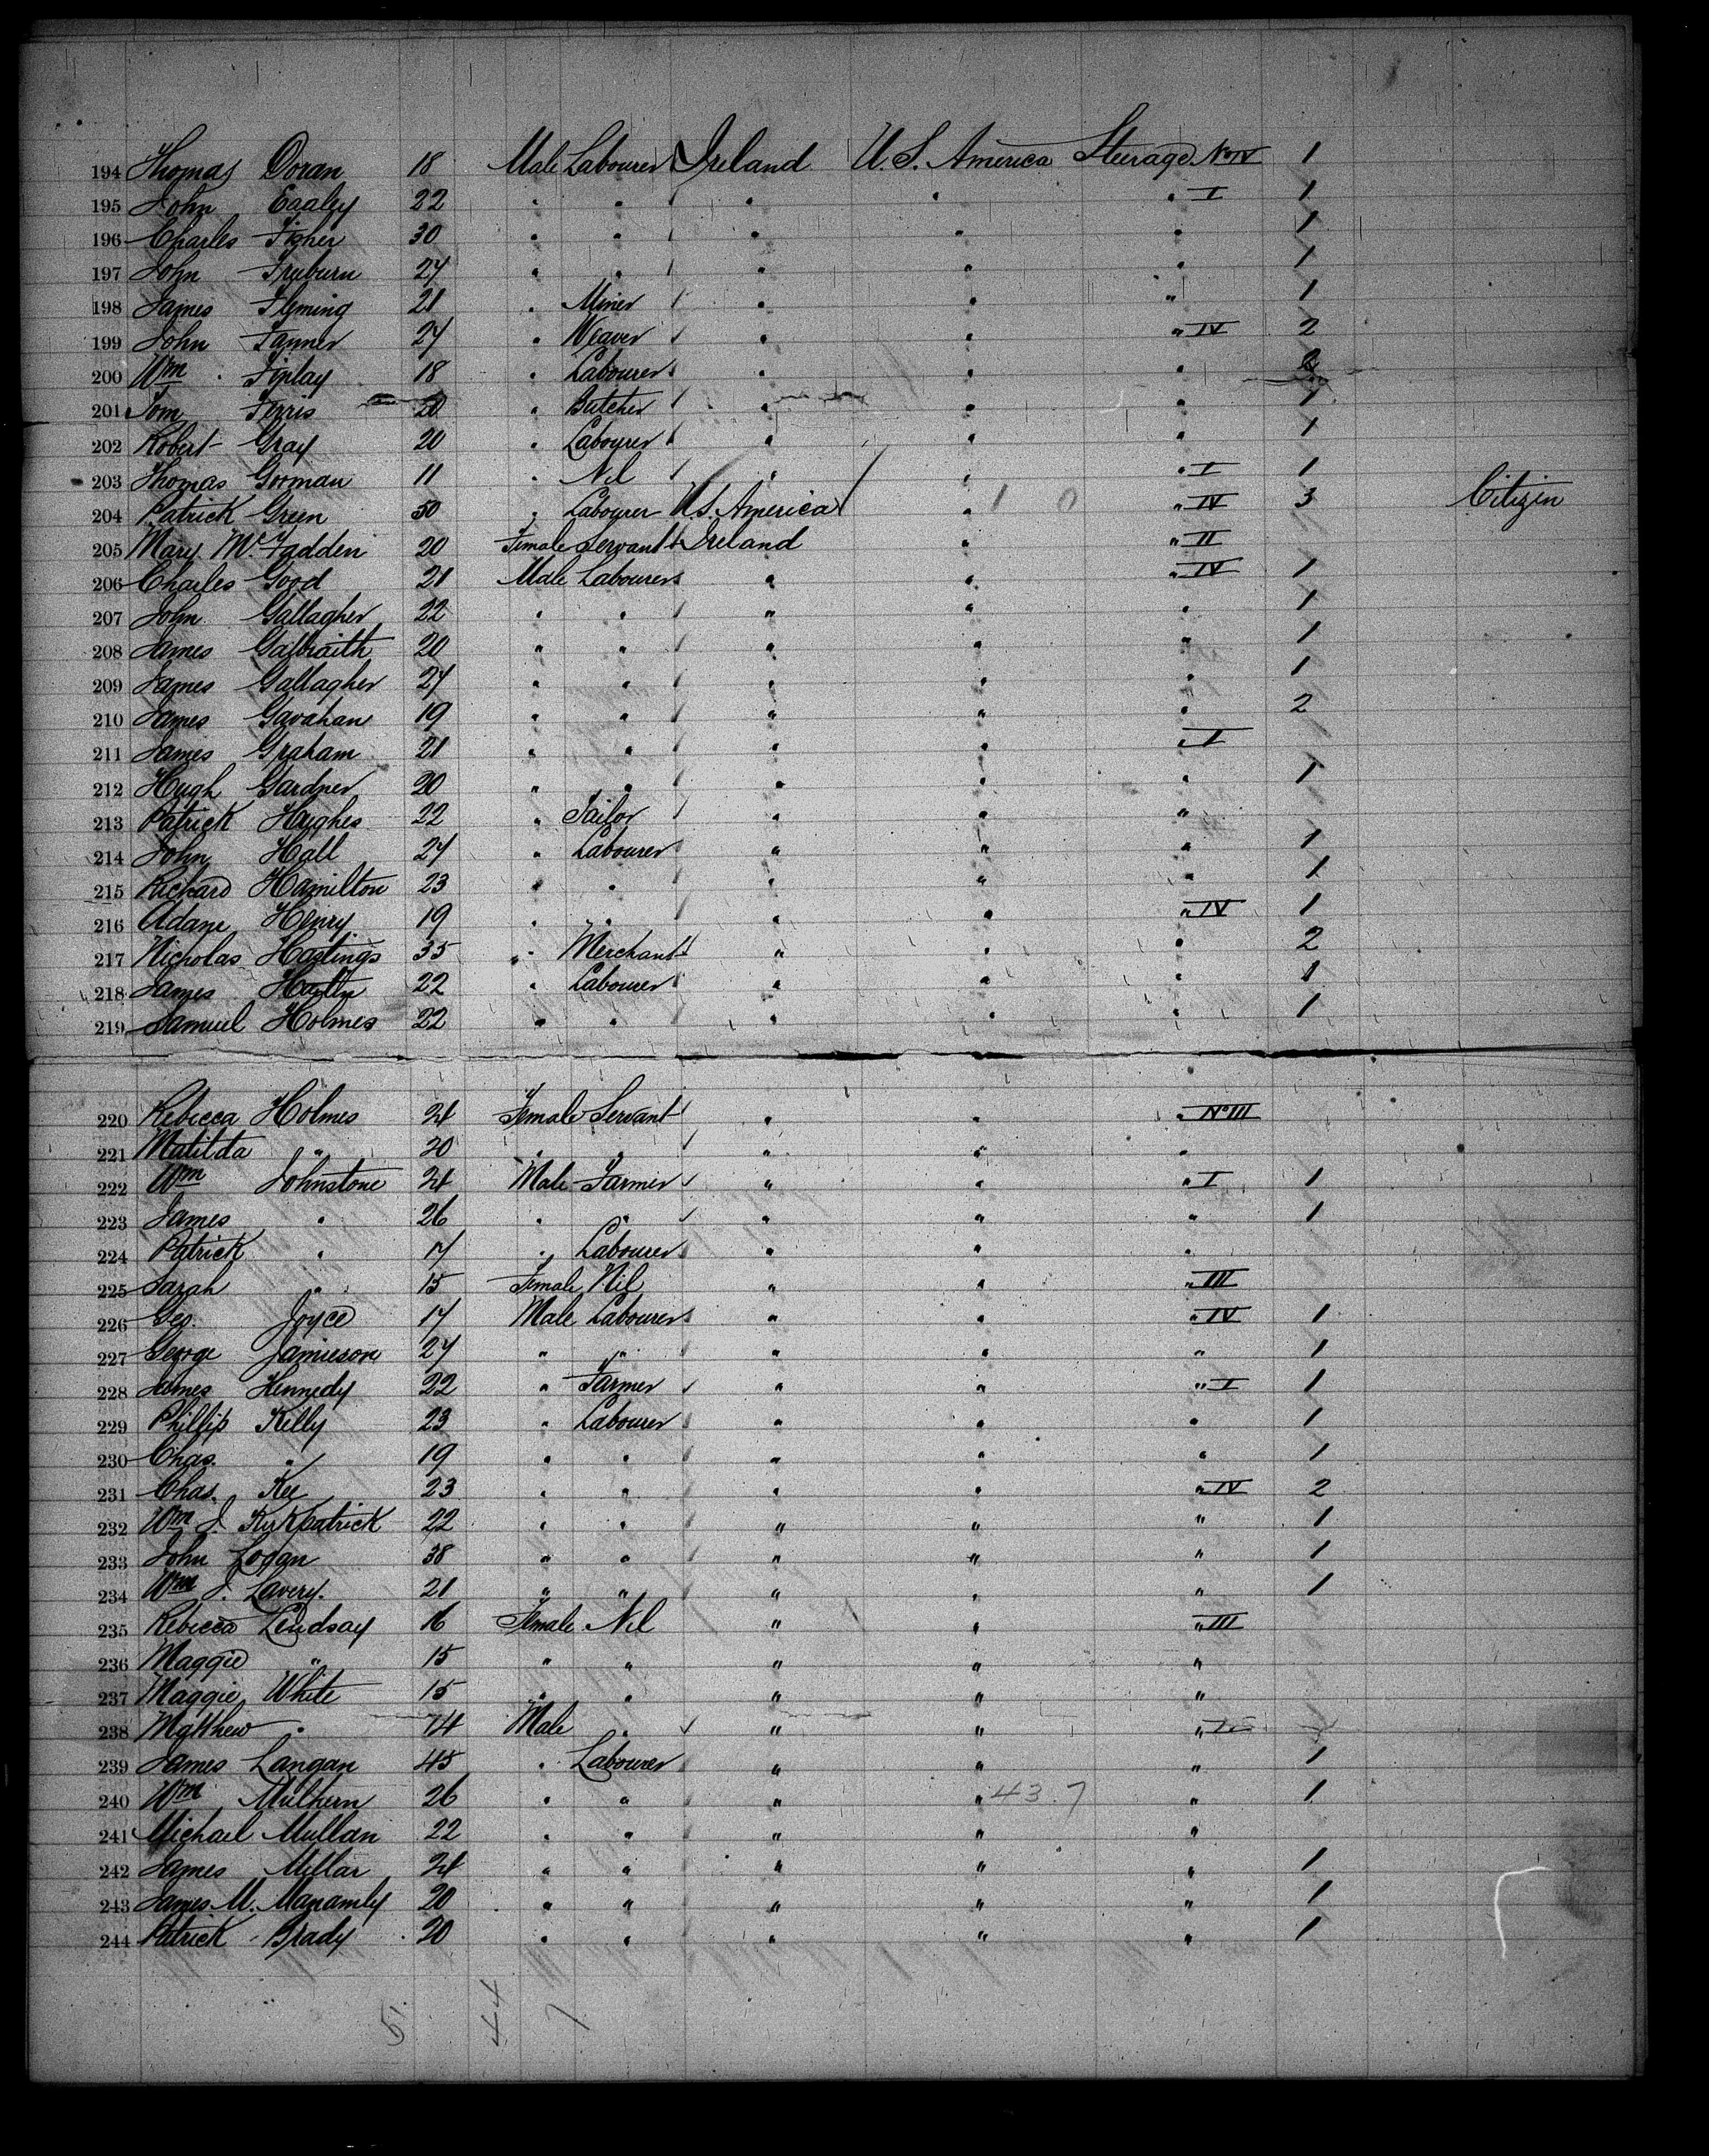 194 Thomas Doran 18 Male Labourer Ireland U. S. America Steerage No IV 1
195 John Ealey 22 " " " " " I 1
196 Charles Fisher 30 " " " " " 1
197 John Freburn 24 " " " " " 1
198 James Fleming 21 " Miner " " " 1
199 John Fanner 24 " Weaver " " " IV 2
200 Wm Finlay 18 " Labourer " " " 2
201 Tom Ferris 20 " Butcher " " " 1
202 Robert Gray 20 " Labourer " " " 1
203 Thomas Gorman 11 " Nil " " " I 1
204 Patrick Green 50 " Labourer U.S. America " 1 0 " IV 3 Citizen
205 Mary McFadden 20 Female Servant Ireland " " II
206 Charles Good 21 Male Labourer " " " IV 1
207 John Gallagher 22 " " " " " 1
208 James Galbraith 20 " " " " " 1
209 James Gallagher 24 " " " " " 1
210 James Gavahan 19 " " " " " 2
211 James Graham 21 " " " " " I
212 Hugh Gardner 20 " " " " " 1
213 Patrick Hughes 22 " Tailor " " "
214 John Hall 24 " Labourer " " " 1
215 Richard Hamilton 23 " " " " " 1
216 Adam Henry 19 " " " " " IV 1
217 Nicholas Hastings 35 " Merchant " " " 2
218 James 22 " Labourer " " " 1
219 Samuel Holmes 22 " " " " " 1
220 Rebecca Holmes 24 Female Servant " " " No III
221 Matilda " 20 " " " " "
222 Wm Johnstone 24 Male Farmer " " " I 1
223 James " 26 " " " " " 1
224 Patrick " 17 " Labourer " " "
225 Sarah " 15 Female Nil " " " III
226 Geo. Joyce 17 Male Labourer " " " IV 1
227 George Jamieson 24 " " " " " 1
228 James Kennedy 22 " Farmer " " " I 1
229 Phillip Kelly 23 " Labourer " " " 1
230 Chas. " 19 " " " " " 1
231 Chas. Kee 23 " " " " " IV 2
232 Wm J. Kirkpatrick 22 " " " " " 1
233 John Logan 38 " " " " " 1
234 Wm J. Lavery. 21 " " " " " 1
235 Rebecca Lindsay 16 Female Nil " " " III
236 Maggie " 15 " " " " "
237 Maggie White 15 " " " " "
238 Matthew " 14 Male " " " " I
239 James Langan 45 " Labourer " " " 1
240 Wm Mulhern 26 " " " " 43.7 " 1
241 Michael Mullan 22 " " " " "
242 James Millar 24 " " " " " 1
243 James M. Manamly 20 " " " " " 1
244 Patrick Brady 20 " " " " " 1
51 44 7